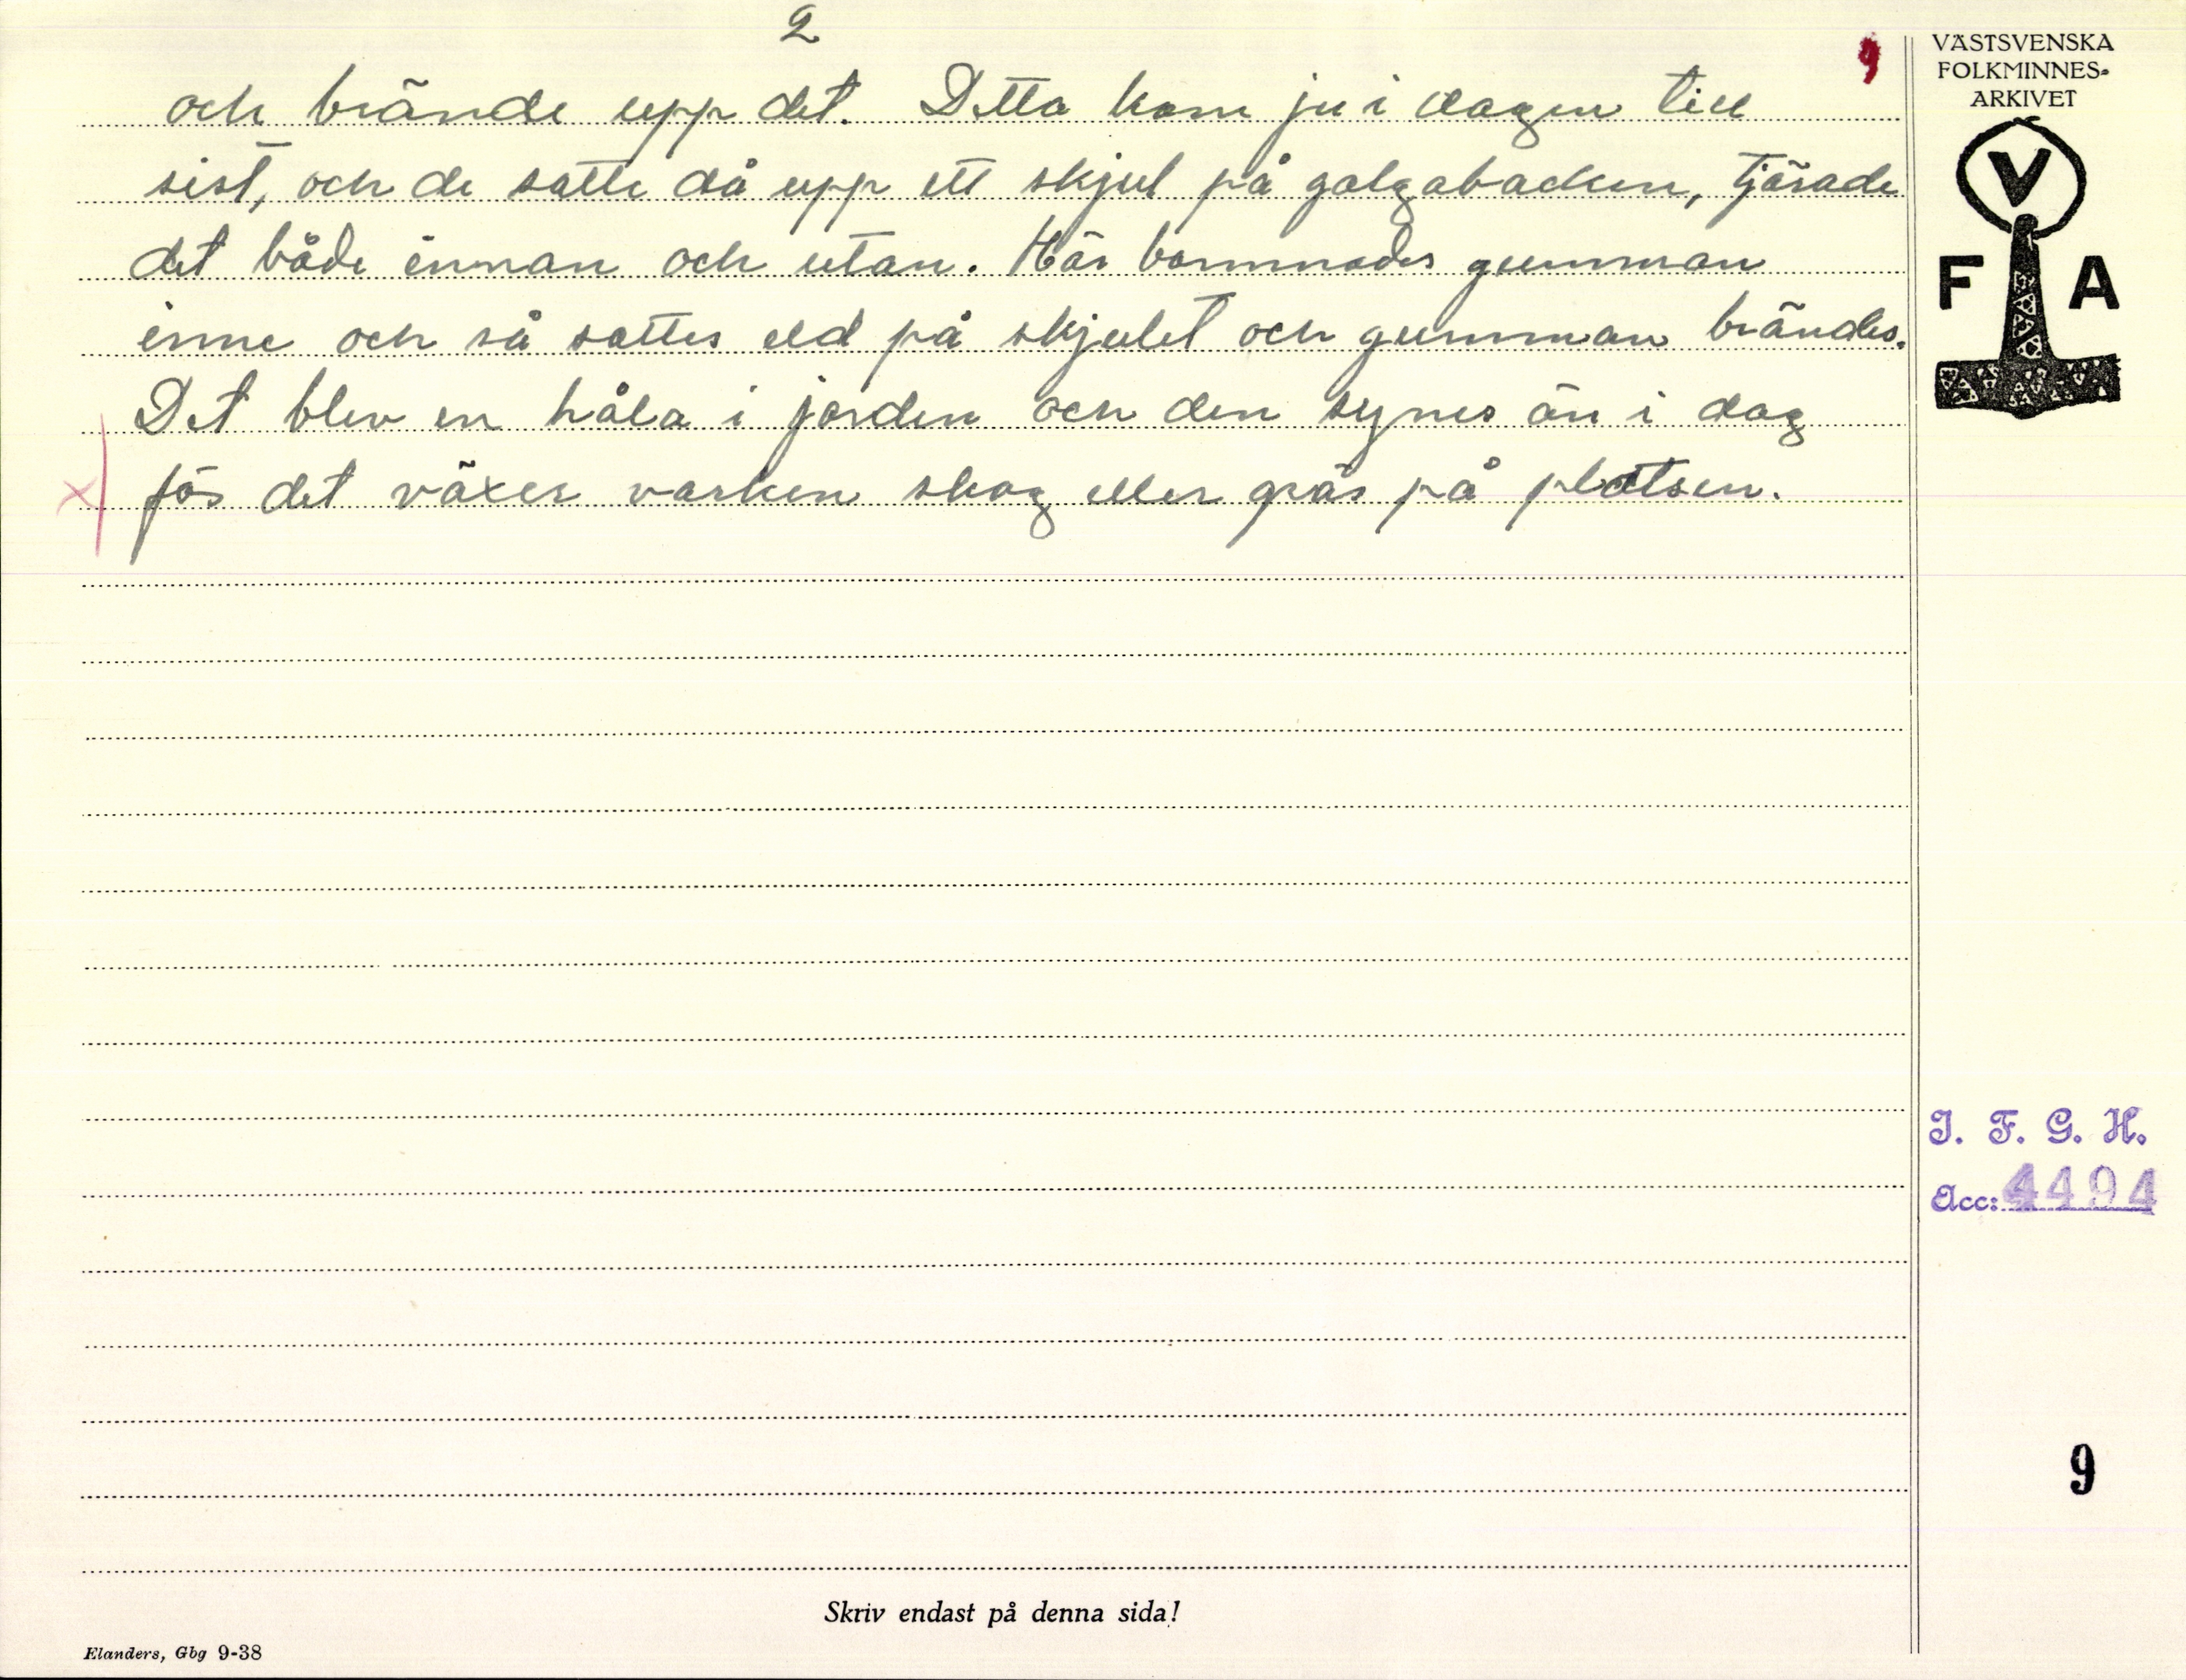 2
9
och brände upp det. Detta kom ju i dagen till
sist, och de satte då upp ett skjul på galgabacken, tjärade
det både innan och utan. Här bommades gumman
inne och så sattes eld på skjulet och gumman brändes.
Det blev en håla i jorden och den synes än i dag
för det växer varken skog eller gräs på platsen.
VÄSTSVENSKA
FOLKMINNES-
ARKIVET
V
F A
I. F. G. H.
Acc: 4494
9
Skriv endast på denna sida!
Elanders, Gbg 9-38